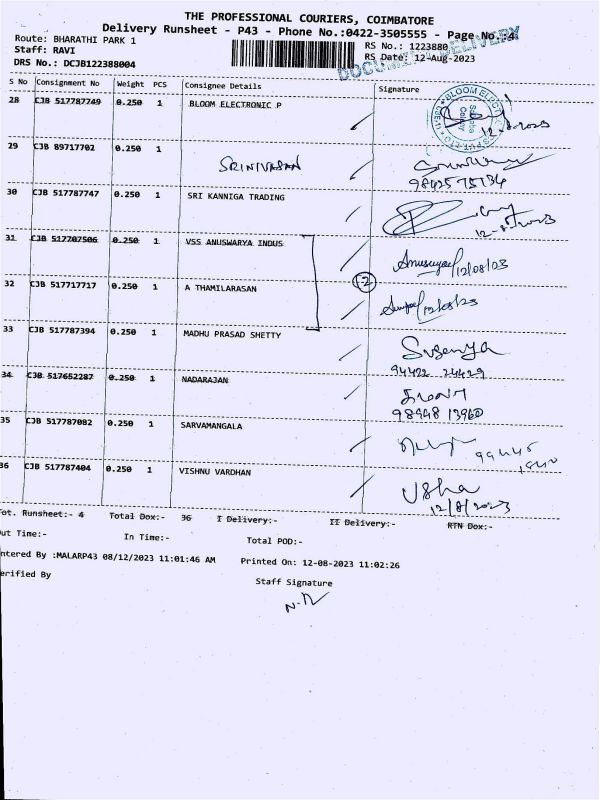 THE PROFESSIONAL COURIERS, COIMBATORE
Delivery Runsheet - P43 - Phone No.:0422-3505555 - Page No.:4
Route: BHARATHI PARK 1
RS No.: 1223880
Staff: RAVI
RS Date: 12-Aug-2023
DRS No.: DCJB122388004
DOCUMENT DELIVERY
S No Consignment No Weight PCS Consignee Details Signature
28 CJB 517787749 0.250 1 BLOOM ELECTRONIC P
12-8-2023
29 CJB 89717702 0.250 1 SRINIVASAN
98425 75134
30 CJB 517787747 0.250 1 SRI KANNIGA TRADING
31 CJB 517707506 0.250 1 VSS ANUSWARYA INDUS
12/08/23
32 CJB 517717717 0.250 1 A THAMILARASAN
33 CJB 517787394 0.250 1 MADHU PRASAD SHETTY
94422 24429
34 CJB 517652287 0.250 1 NADARAJAN
98948 13960
35 CJB 517787082 0.250 1 SARVAMANGALA
36 CJB 517787404 0.250 1 VISHNU VARDHAN
Usha
12/8/2023
Tot. Runsheet:- 4 Total Dox:- 36 I Delivery:- II Delivery:- RTN Dox:-
Out Time:- In Time:- Total POD:-
ntered By :MALARP43 08/12/2023 11:01:46 AM Printed On: 12-08-2023 11:02:26
erified By Staff Signature